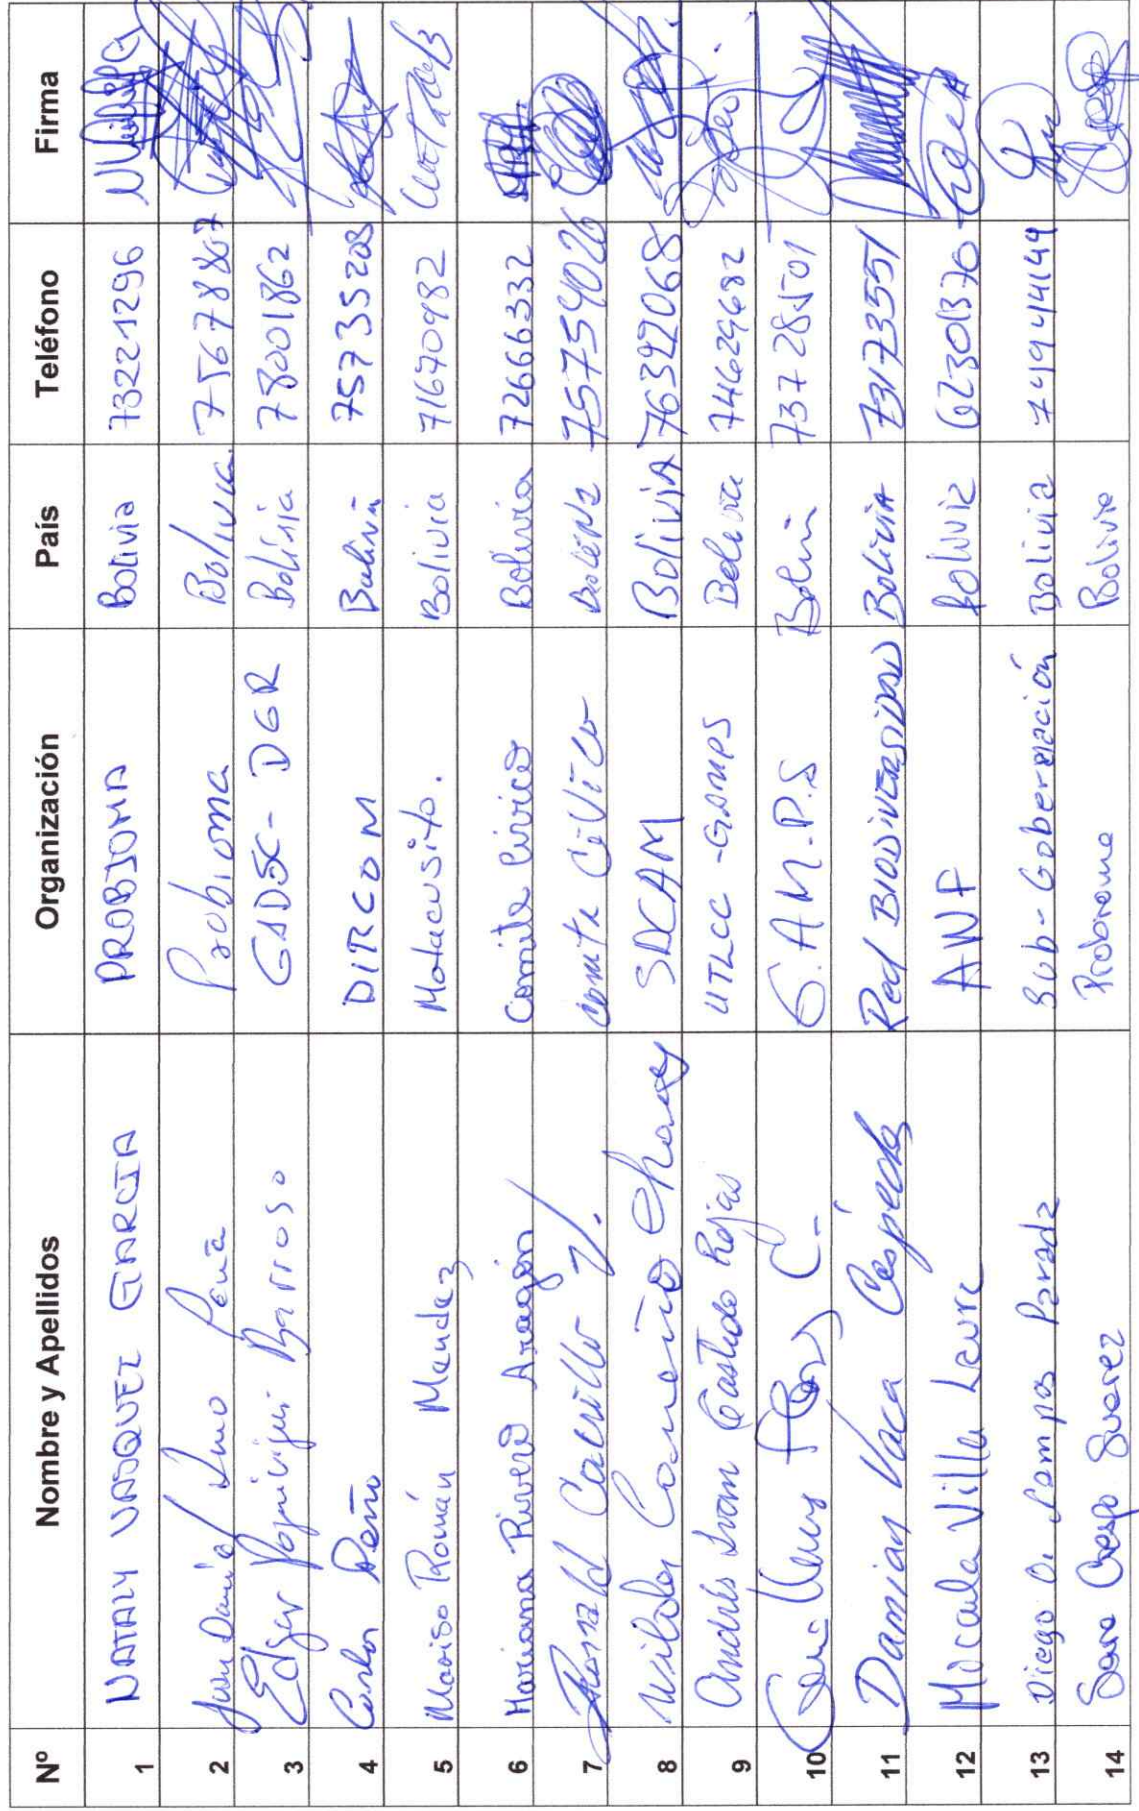 Nº Nombre y Apellidos Organización País Teléfono Firma
1 NATALY VASQUEZ GARCIA PROBIOMA Bolivia 73221296
2 Juan Daniel Peña Probioma Bolivia
3 Edgar Barroso GADSC - DGR Bolivia 78001862
4 Carlos Peña DIRCOM Bolivia 75735208
5 Román Mendez Motacusito. Bolivia 71640982
6 Mariana Rivero Aragón Comite Civico Bolivia 72666332
7 Ronald Carrillo comite CiVico 75754026
8 Chavez SDCAM BoliviA 76322068
9 Andrés Ivan Castedo Rojas UTLCC - GAMPS Bolivia 74629682
10 G.A.M.P.S 73728501
11 Damian Vaca Céspedes Red BIODIVERSIDAD BoliviA 73173551
12 Villa AWF Bolivia 62301370
13 Diego O. Parada Sub-Gobernación Bolivia
14 Sara Crespo Suarez Probioma Bolivia